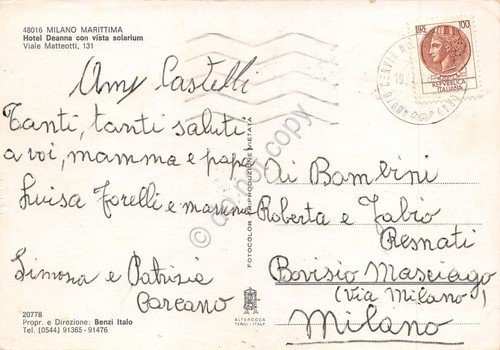 48016 MILANO MARITTIMA
Hotel Deanna con vista solarium
Viale Matteotti, 131
LIRE 100
REPVBBLICA
ITALIANA
Castelli
Tanti, tanti saluti
a voi, mamma e papà
Luisa Torelli e mamma
Simona e Patrizia
Parcano
Ai Bambini
Roberta e Fabio
Resnati
Bovisio Masciago
(Via Milano)
Milano
FOTOCOLOR RIPRODUZIONE VIETATA
do not copy
ALTEROCCA
TERNI - ITALY
20778
Propr. e Direzione: Benzi Italo
Tel. (0544) 91365 - 91476